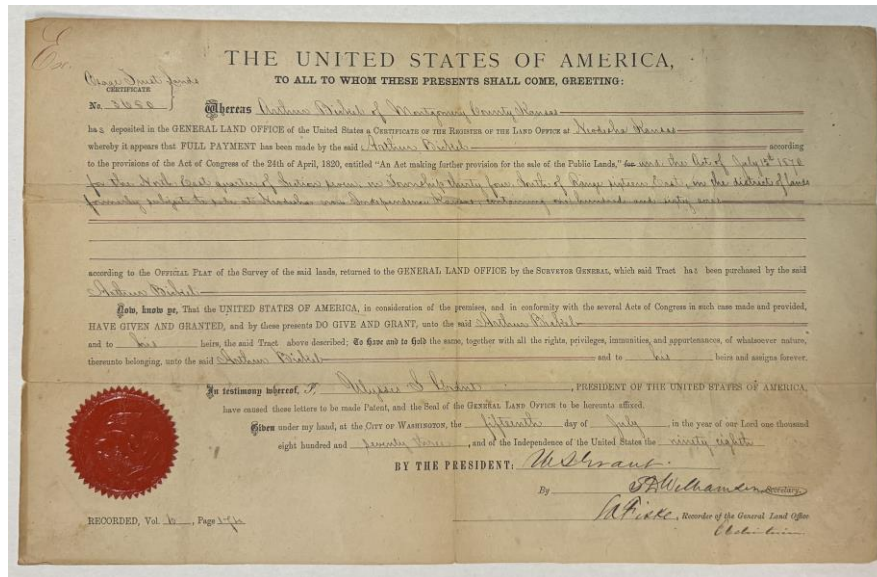 THE UNITED STATES OF AMERICA,
TO ALL TO WHOM THESE PRESENTS SHALL COME, GREETING:
Osage Trust Lands
CERTIFICATE
No. 3680
Whereas Arthur Bickel of Montgomery County Kansas
has deposited in the GENERAL LAND OFFICE of the United States a CERTIFICATE OF THE REGISTER OF THE LAND OFFICE at Neodesha Kansas
whereby it appears that FULL PAYMENT has been made by the said Arthur Bickel according
to the provisions of the Act of Congress of the 24th of April, 1820, entitled "An Act making further provision for the sale of the Public Lands," and the Act of July 15th 1870
for the North East quarter of Section seven in Township thirty four South of Range sixteen East, in the district of lands
formerly subject to sale at Neodesha now Independence Kansas, containing one hundred and sixty acres
according to the OFFICIAL PLAT of the Survey of the said lands, returned to the GENERAL LAND OFFICE by the SURVEYOR GENERAL, which said Tract has been purchased by the said
Arthur Bickel
Now, know ye, That the UNITED STATES OF AMERICA, in consideration of the premises, and in conformity with the several Acts of Congress in such case made and provided,
HAVE GIVEN AND GRANTED, and by these presents DO GIVE AND GRANT, unto the said Arthur Bickel
and to his heirs, the said Tract above described; To have and to hold the same, together with all the rights, privileges, immunities, and appurtenances, of whatsoever nature,
thereunto belonging, unto the said Arthur Bickel and to his heirs and assigns forever.
In testimony whereof, I, Ulysses S. Grant, PRESIDENT OF THE UNITED STATES OF AMERICA,
have caused these letters to be made Patent, and the Seal of the GENERAL LAND OFFICE to be hereunto affixed.
Given under my hand, at the CITY OF WASHINGTON, the fifteenth day of July in the year of our Lord one thousand
eight hundred and seventy three, and of the Independence of the United States the ninety eighth
BY THE PRESIDENT: U.S. Grant
By S.D. Williamson Secretary.
RECORDED, Vol. 6, Page 176
Fiske, Recorder of the General Land Office